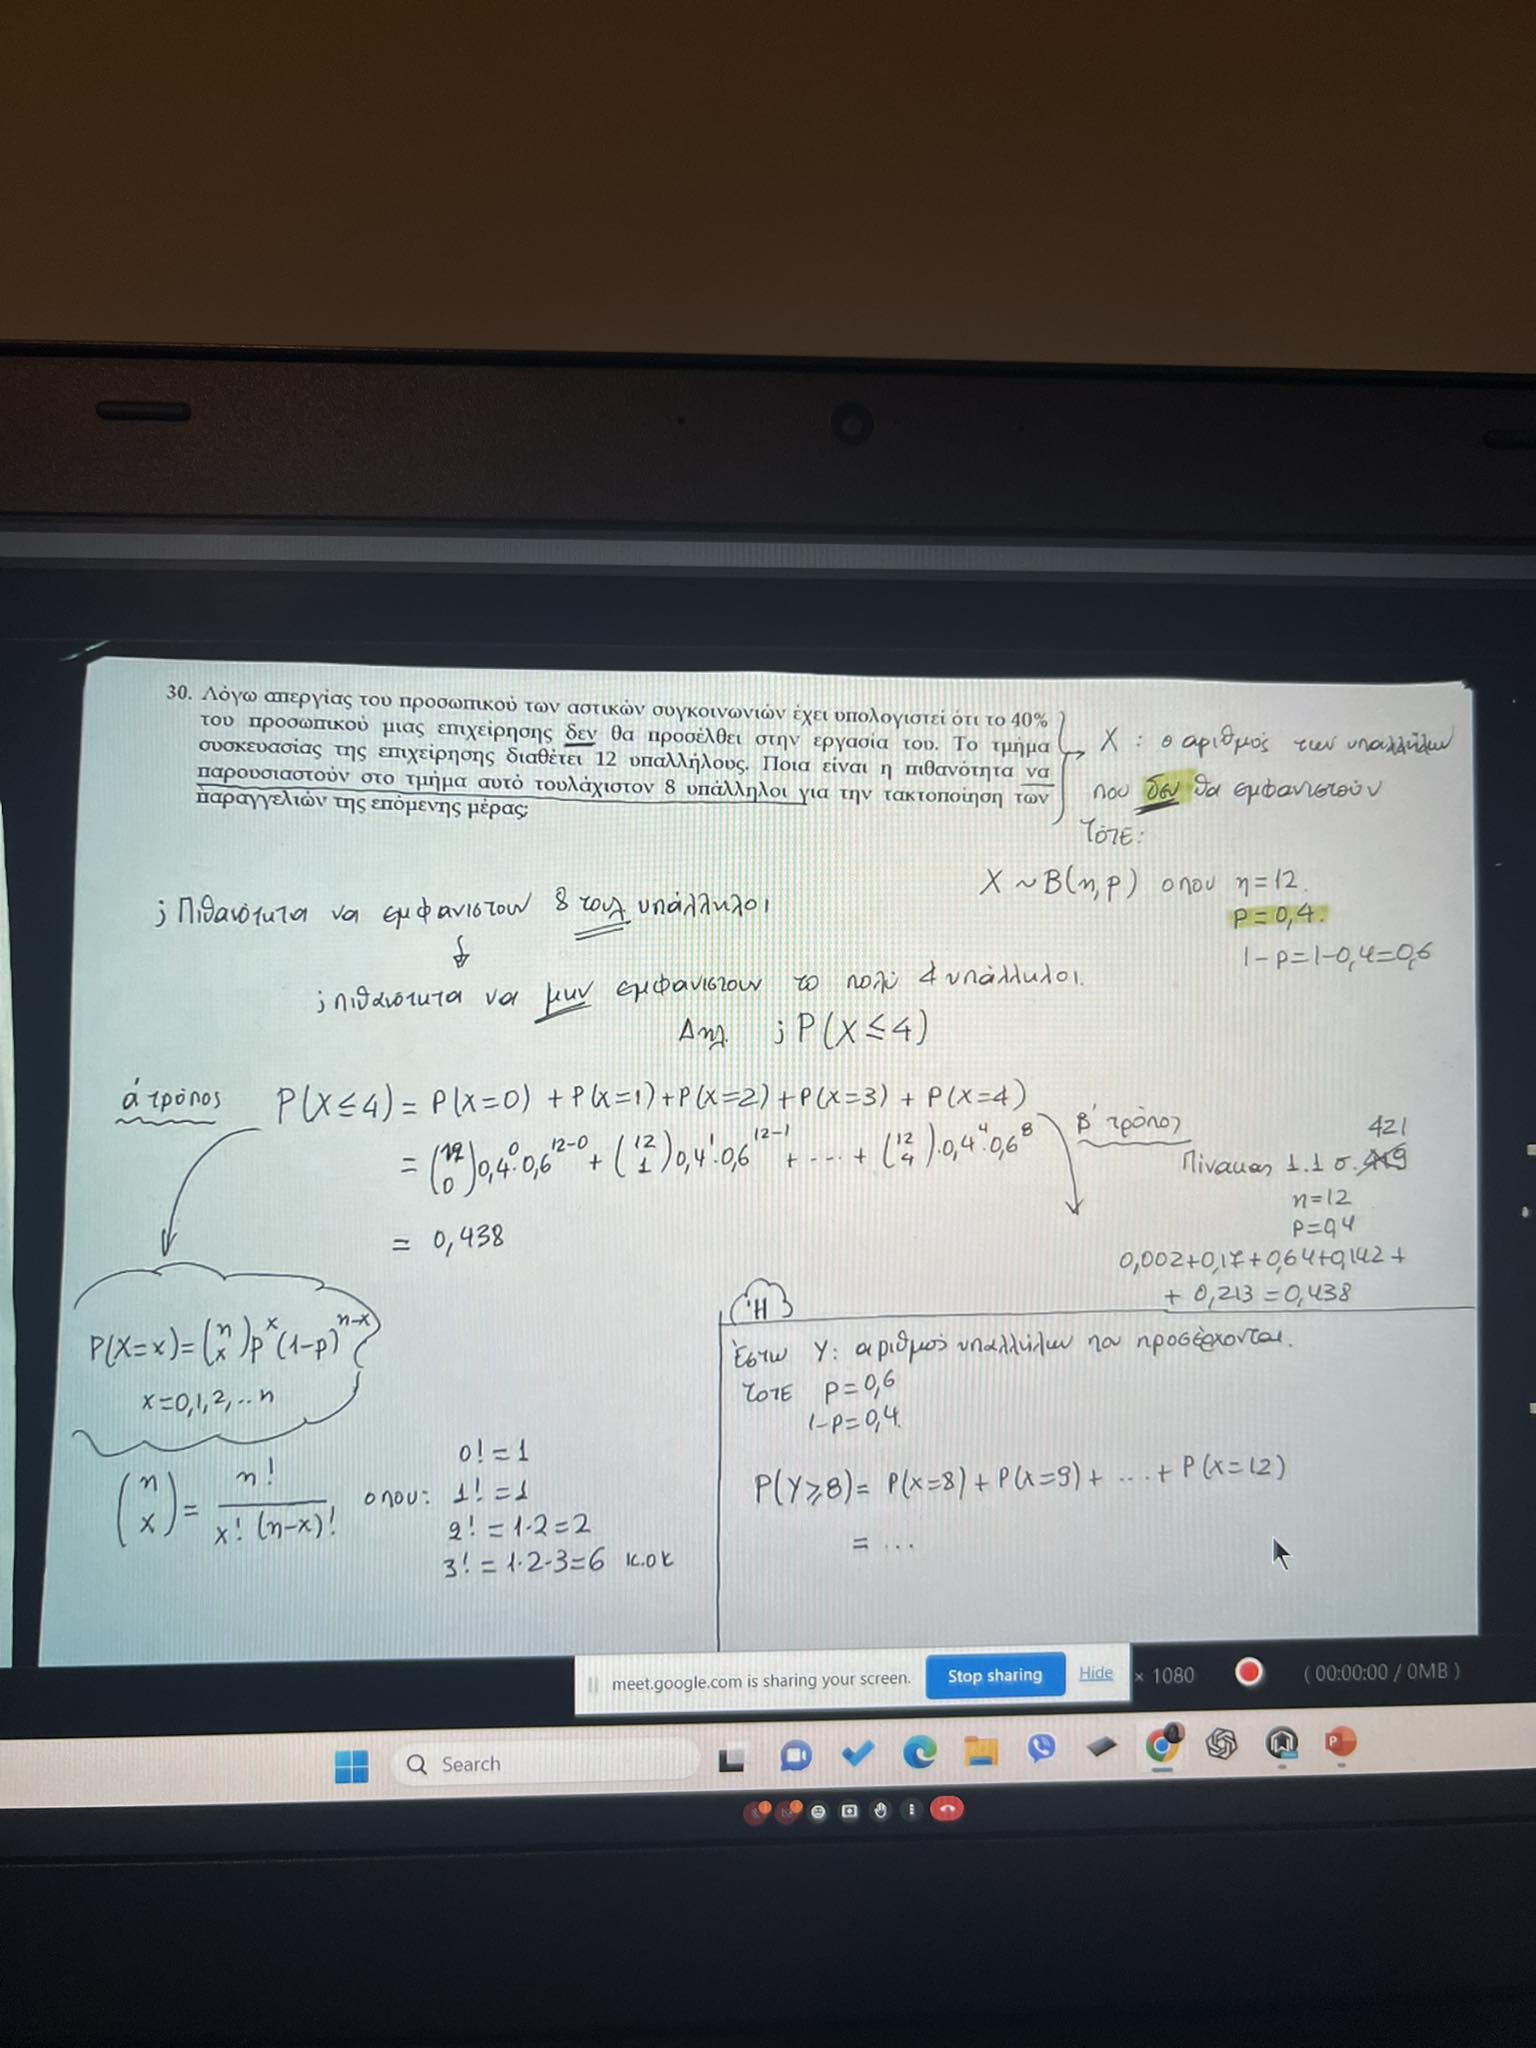 30. Λόγω απεργίας του προσωπικού των αστικών συγκοινωνιών έχει υπολογιστεί ότι το 40%
του προσωπικού μιας επιχείρησης δεν θα προσέλθει στην εργασία του. Το τμήμα
συσκευασίας της επιχείρησης διαθέτει 12 υπαλλήλους. Ποια είναι η πιθανότητα να
παρουσιαστούν στο τμήμα αυτό τουλάχιστον 8 υπάλληλοι για την τακτοποίηση των
παραγγελιών της επόμενης μέρας;
X : ο αριθμός των υπαλλήλων
που δεν θα εμφανιστούν
Τότε:
X ~ B(n,p) οπου n=12.
p=0,4.
1-p=1-0,4=0,6
; Πιθανότητα να εμφανιστουν 8 τουλ υπάλληλοι
; πιθανότητα να μην εμφανιστουν το πολύ 4 υπάλληλοι.
Δηλ. ; P(X≤4)
ά τρόπος P(X≤4) = P(X=0) + P(X=1)+P(X=2)+P(X=3) + P(X=4)
= (12 0) 0,4^0·0,6^12-0 + (12 1) 0,4^1·0,6^12-1 + ... + (12 4)·0,4^4·0,6^8
= 0,438
β' τρόπος
421
Πίνακας 1.1 σ. 419
n=12
p=0,4
0,002+0,17+0,64+0,142+
+ 0,213 = 0,438
P(X=x)=(n x)p^x(1-p)^n-x
x=0,1,2,..n
(n x) = n! / x! (n-x)! οπου: 0! = 1
1! = 1
2! = 1·2=2
3! = 1·2·3=6 κ.οκ
Ή
Έστω Y: αριθμός υπαλλήλων που προσέρχονται.
τοτε p=0,6
1-p=0,4.
P(Y≥8)= P(X=8) + P(X=9) + ... + P(X=12)
= ...
meet.google.com is sharing your screen. Stop sharing Hide × 1080 ( 00:00:00 / 0MB )
Search